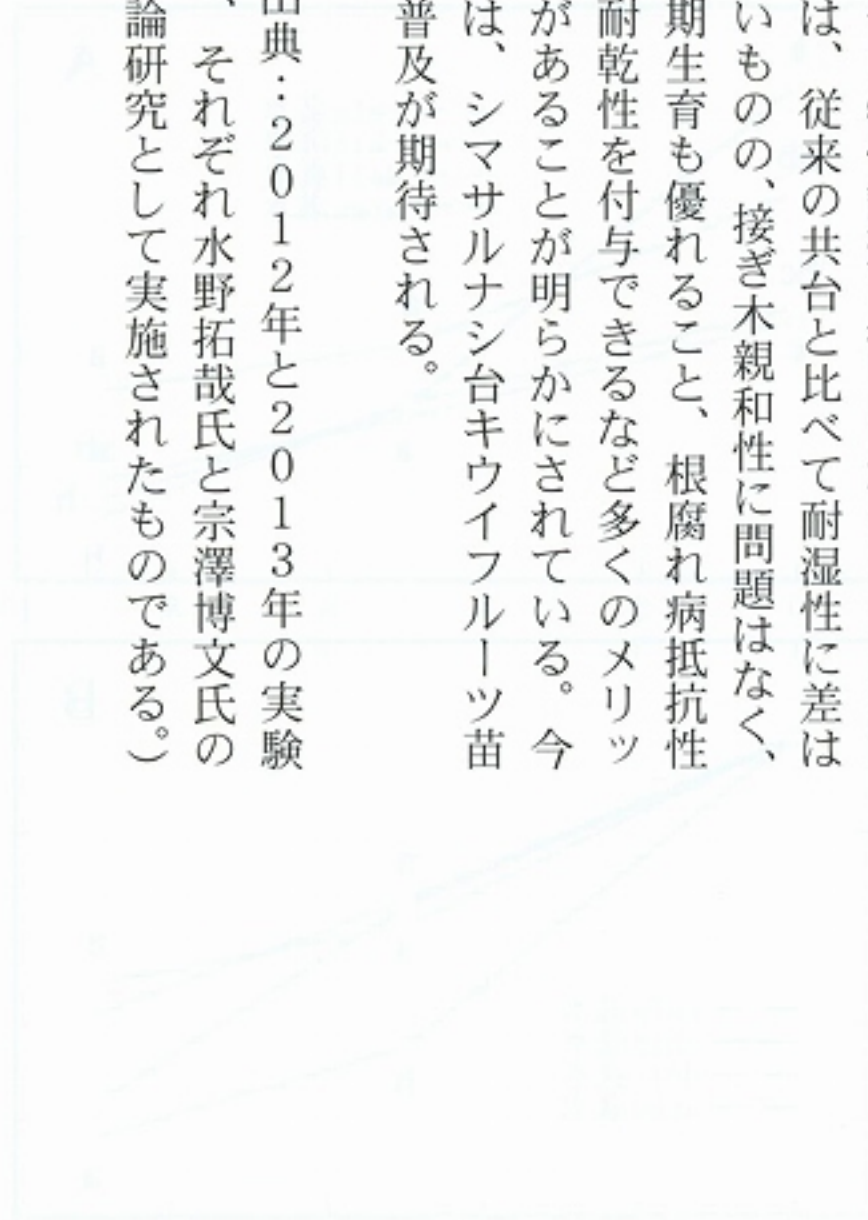 は、従来の共台と比べて耐湿性に差は
いものの、接ぎ木親和性に問題はなく、
期生育も優れること、根腐れ病抵抗性
耐乾性を付与できるなど多くのメリッ
があることが明らかにされている。今
は、シマサルナシ台キウイフルーツ苗
普及が期待される。
出典：2012年と2013年の実験
、それぞれ水野拓哉氏と宗澤博文氏の
論研究として実施されたものである。）